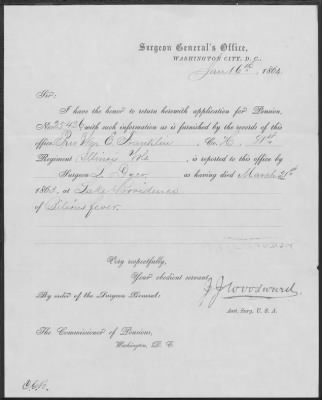 Surgeon General's Office,
WASHINGTON CITY, D. C.,
Jany 6th, 1864
Sir:
I have the honor to return herewith application for Pension,
No. 25426 with such information as is furnished by the records of this
office. Wm C. Franklin Co. H. 81st
Regiment Illinois Vols, is reported to this office by
Surgeon L. Dyer as having died March 21st
1863, at Lake Providence
of Bilious fever.
Very respectfully,
Your obedient servant,
By order of the Surgeon General:
J. J. Woodward
Asst. Surg. U. S. A.
The Commissioner of Pensions,
Washington, D. C.